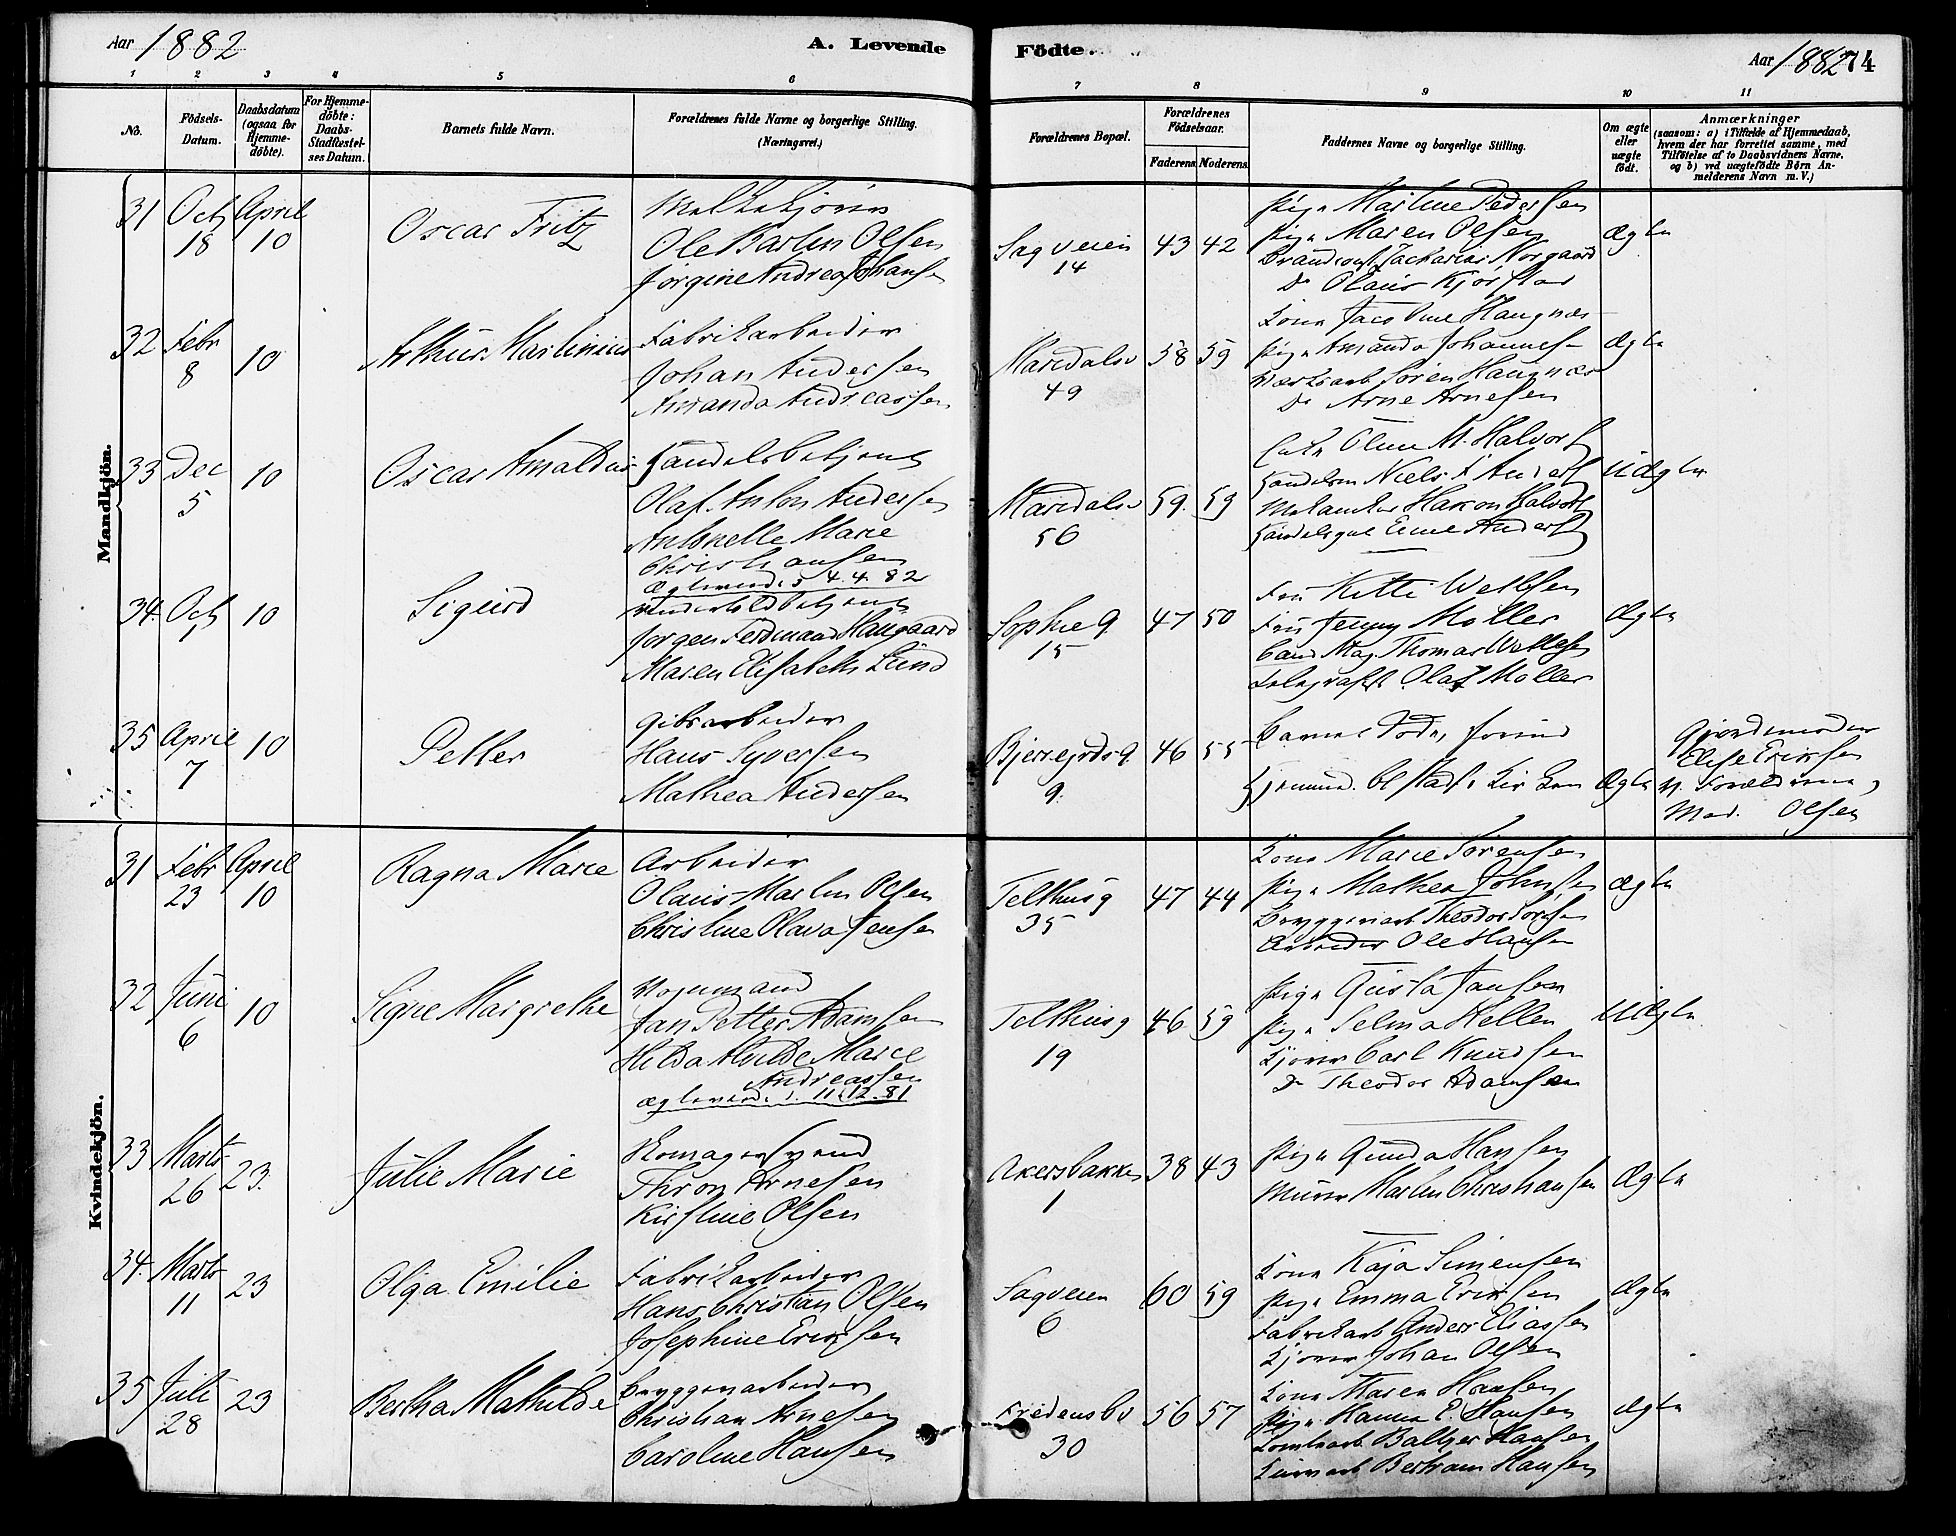 Aar 1882
A. Levende Födte.
Aar 1882
74
1 2 3 4 5 6 7 8 9 10 11
No.
Födsels-Datum.
Daabsdatum (ogsaa for Hjemme-döbte).
For Hjemme-döbte: Daabs-Stadfæstel-ses Datum.
Barnets fulde Navn.
Forældrenes fulde Navne og borgerlige Stilling.
(Næringsvei.)
Forældrenes Bopæl.
Forældrenes Födselsaar.
Faderens. Moderens.
Faddernes Navne og borgerlige Stilling.
Om ægte eller uægte födt.
Anmærkninger
(saasom: a) i Tilfælde af Hjemmedaab,
hvem der har forrettet samme, med
Tilföielse af to Daabsvidners Navne,
og b) ved uægtefödte Börn An-
melderens Navn m. V.)
Mandkjön.
31 Oct 18 April 10
Oscar Fritz
Ole Martin Olsen
Jørgine Andrea Johans
Sagveien 14
43 42
Pige Martine Pedersen
Pige Maren Olsen
Zacharias Norgaard
Do Olaus
Ægte
32 Febr 8 10
Arthur Martinius
Fabrikarbeider
Johan Andersen
Amanda Andreassen
Maridalsv 49
58 59
Kone Jacobine Haugnæs
Pige Amanda Johannes
Søren Haugnæs
Do Arne Arnesen
Ægte
33 Dec 5 10
Oscar Amaldus
Handelsbetjent
Olaf Anton Andersen
Antonelle Marie
Christiansen
4.4.82
Maridalsv 56
59. 59
Oline M. Halvors
Niels Anders
Hakon Halvors
Anders
Uægte
34. Oct 1 10
Sigurd
Jørgen Ferdinand Haugaard
Maren Elisabeth Lund
Sophieg. 15
47 50
Fru Kitti
Fru Jenny Møller
Cand Mag. Thomas
Telegrafist Olaf Møller
Ægte
35 April 7 10
Petter
Hans Syversen
Mathea Andersen
Bjerregrdsg. 9.
46 55
Ægte
Gjordemoder
Elise Eriksen
Mad. Olsen
Kvindekjön.
31 Febr 23 April 10
Ragna Marie
Arbeider
Olaus Martin Olsen
Christine Olava Jensen
Telthusg 35
47 44
Kone Marie Sørensen
Pige Mathea Johns
Bryggeriarb Theodor
Arbeider Ole Hansen
Ægte
32 Juni 6 10
Signe Margrethe
Vognmand
Jan Petter Adamsen
Hilda Hulda Marie
Andreassen
11.12.81
Telthusg 19
46 59
Pige Gusta Jansen
Pige Selma Hellen
Kjører Carl Knudsen
Do Theodor Adamsen
Uægte
33 Marts 26 23.
Julie Marie
Skomagersvend
Thron Arnesen
Kirstine Olsen
Akersbakken 1
38 43
Pige Gunda Hansen
Murer Martin Christiansen
Ægte
34. Marts 11 23
Olga Emilie
Fabrikarbeider
Hans Christian Olsen
Josephine Eriksen
Sagveien 6
60 59
Kone Kaja Simensen
Pige Emma Eriksen
Fabrikarb Anders Eliassen
Kjører Johan Olsen
Ægte
35 Juli 28 23
Bertha Mathilde
Bryggeriarbeider
Christian Arnesen
Caroline Hansen
Fredensbv 30
56 57
Kone Maren Hansen
Pige Hanna E. Hansen
Baltzer Hansen
Bertram Hansen
Ægte